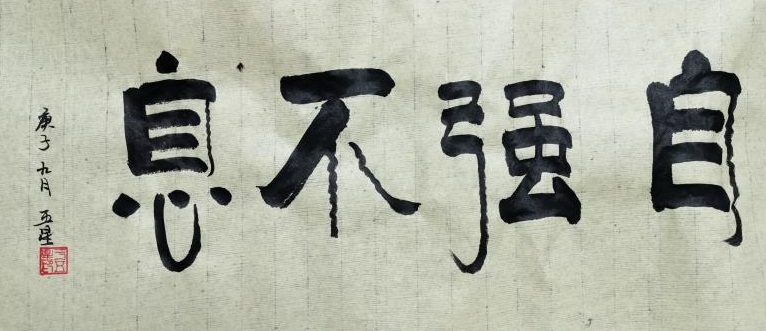 自强不息
庚子九月 五星